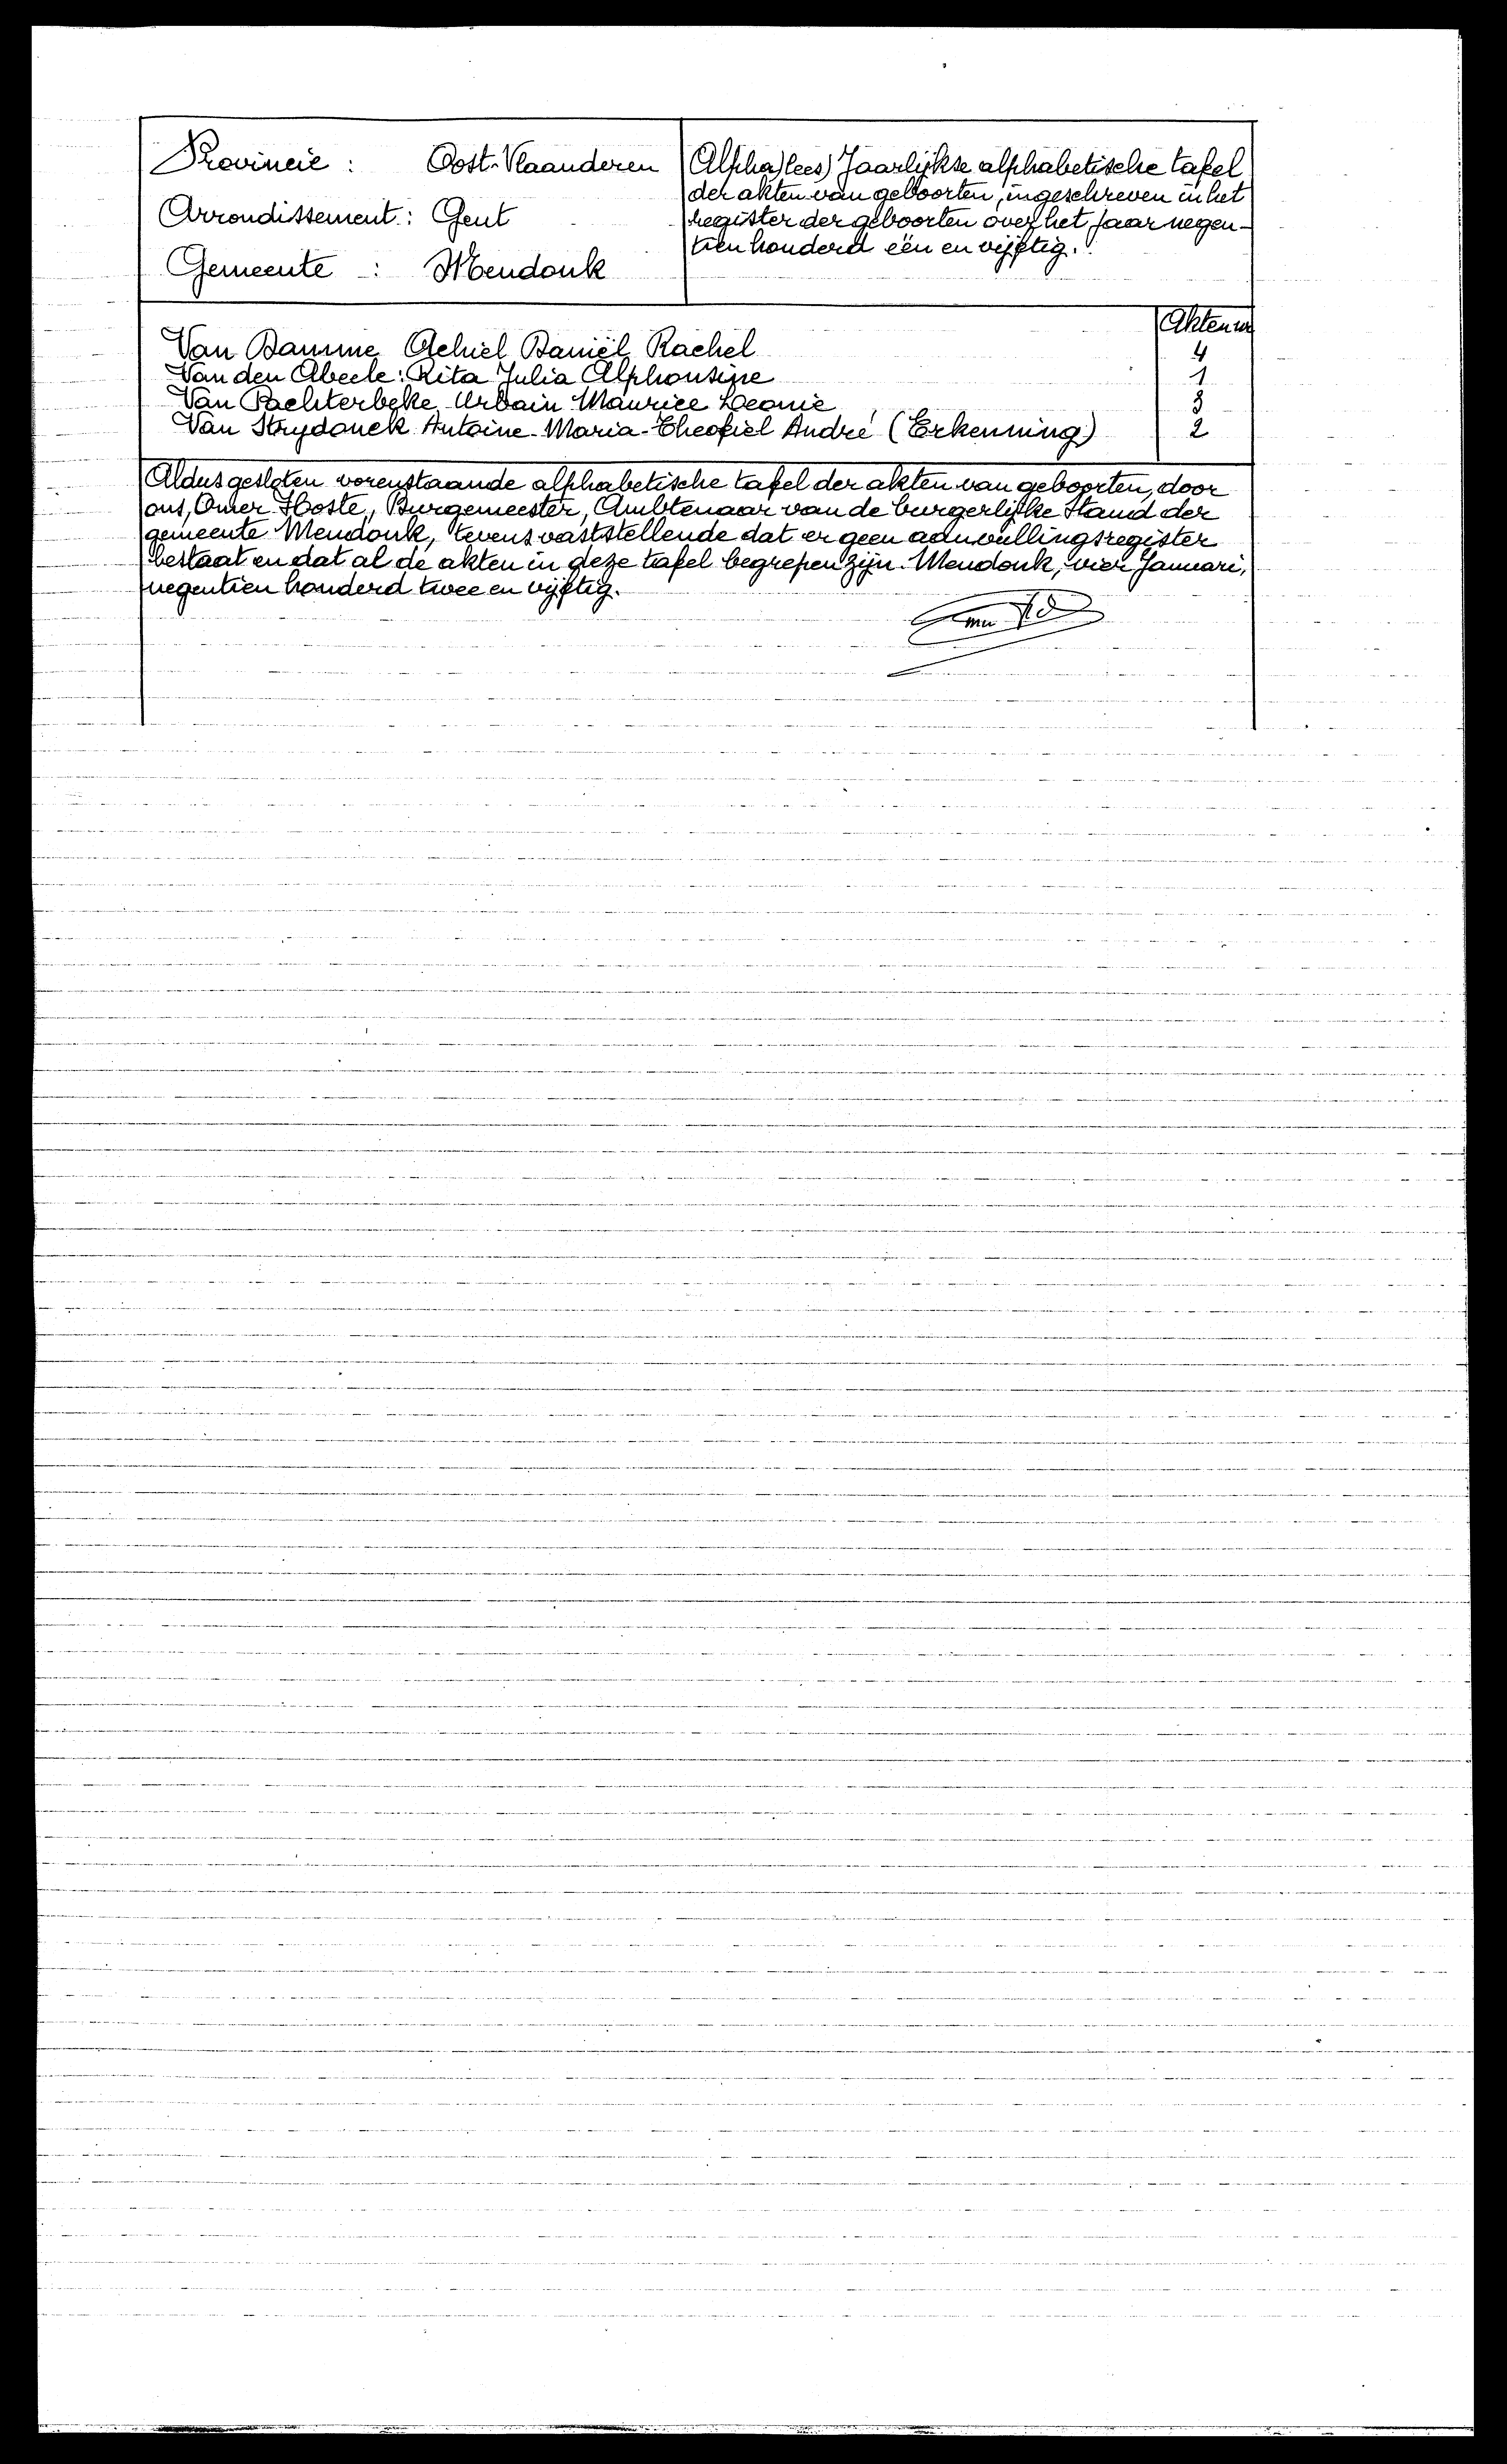 Provincie : Oost-Vlaanderen
Arrondissement : Gent
Gemeente : Mendonk
Alpha) lees) Jaarlijkse alphabetische tafel
der akten van geboorten, ingeschreven in het
register der geboorten over het jaar negen-
tien honderd één en vijftig.
Akten nr
Van Damme Achiel Daniël Rachel 4
Van den Abeele : Rita Julia Alphonsine 1
Van Pachterbeke Urbain Maurice Leonie 3
Van Strydonck Antoine-Maria-Theofiel André (Erkenning) 2
Aldus gesloten vorenstaande alphabetische tafel der akten van geboorten, door
ons, Omer Hoste, Burgemeester, Ambtenaar van de burgerlijke Stand der
gemeente Mendonk, tevens vaststellende dat er geen aanvullingsregister
bestaat en dat al de akten in deze tafel begrepen zijn. Mendonk, vier Januari,
negentien honderd twee en vijftig.